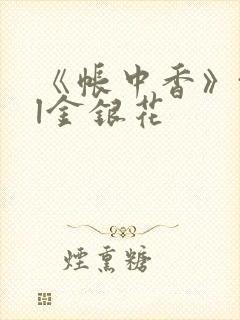 《帐中香》
l金银花
煙熏糖